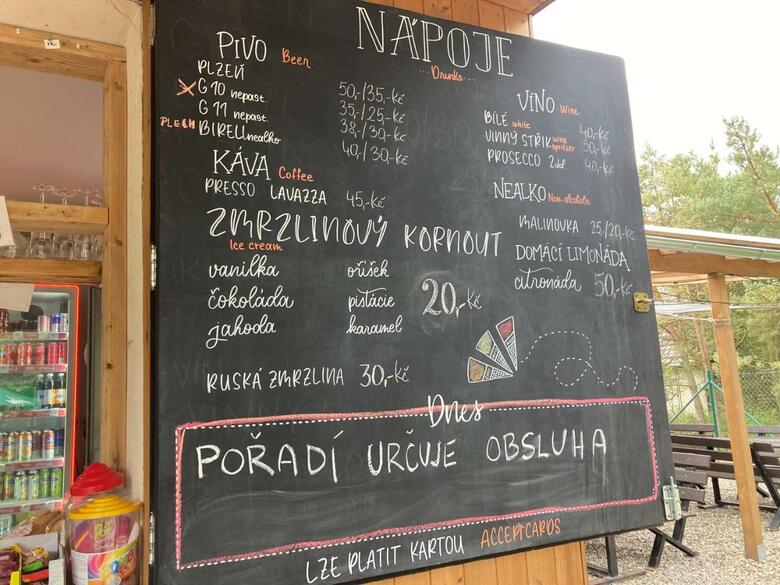 NÁPOJE
Drinks
PIVO Beer
PLZEŇ 50,-/35,-Kč
G10 nepast. 35,-/25,-Kč
G11 nepast. 38,-/30,-Kč
PLECH BIRELL nealko 40,-/30,-Kč
KÁVA Coffee
PRESSO LAVAZZA 45,-Kč
VÍNO Wine
BÍLÉ white 40,-Kč
VINNÝ STŘIK wine spritzer 50,-Kč
PROSECCO 2dcl 40,-Kč
NEALKO Non-alcoholic
MALINOVKA 25,-/20,-Kč
DOMÁCÍ LIMONÁDA
citronáda 50,-Kč
ZMRZLINOVÝ KORNOUT
Ice cream
vanilka oříšek
čokoláda pistácie 20,-Kč
jahoda karamel
RUSKÁ ZMRZLINA 30,-Kč
Dnes
POŘADÍ URČUJE OBSLUHA
LZE PLATIT KARTOU ACCEPTCARDS